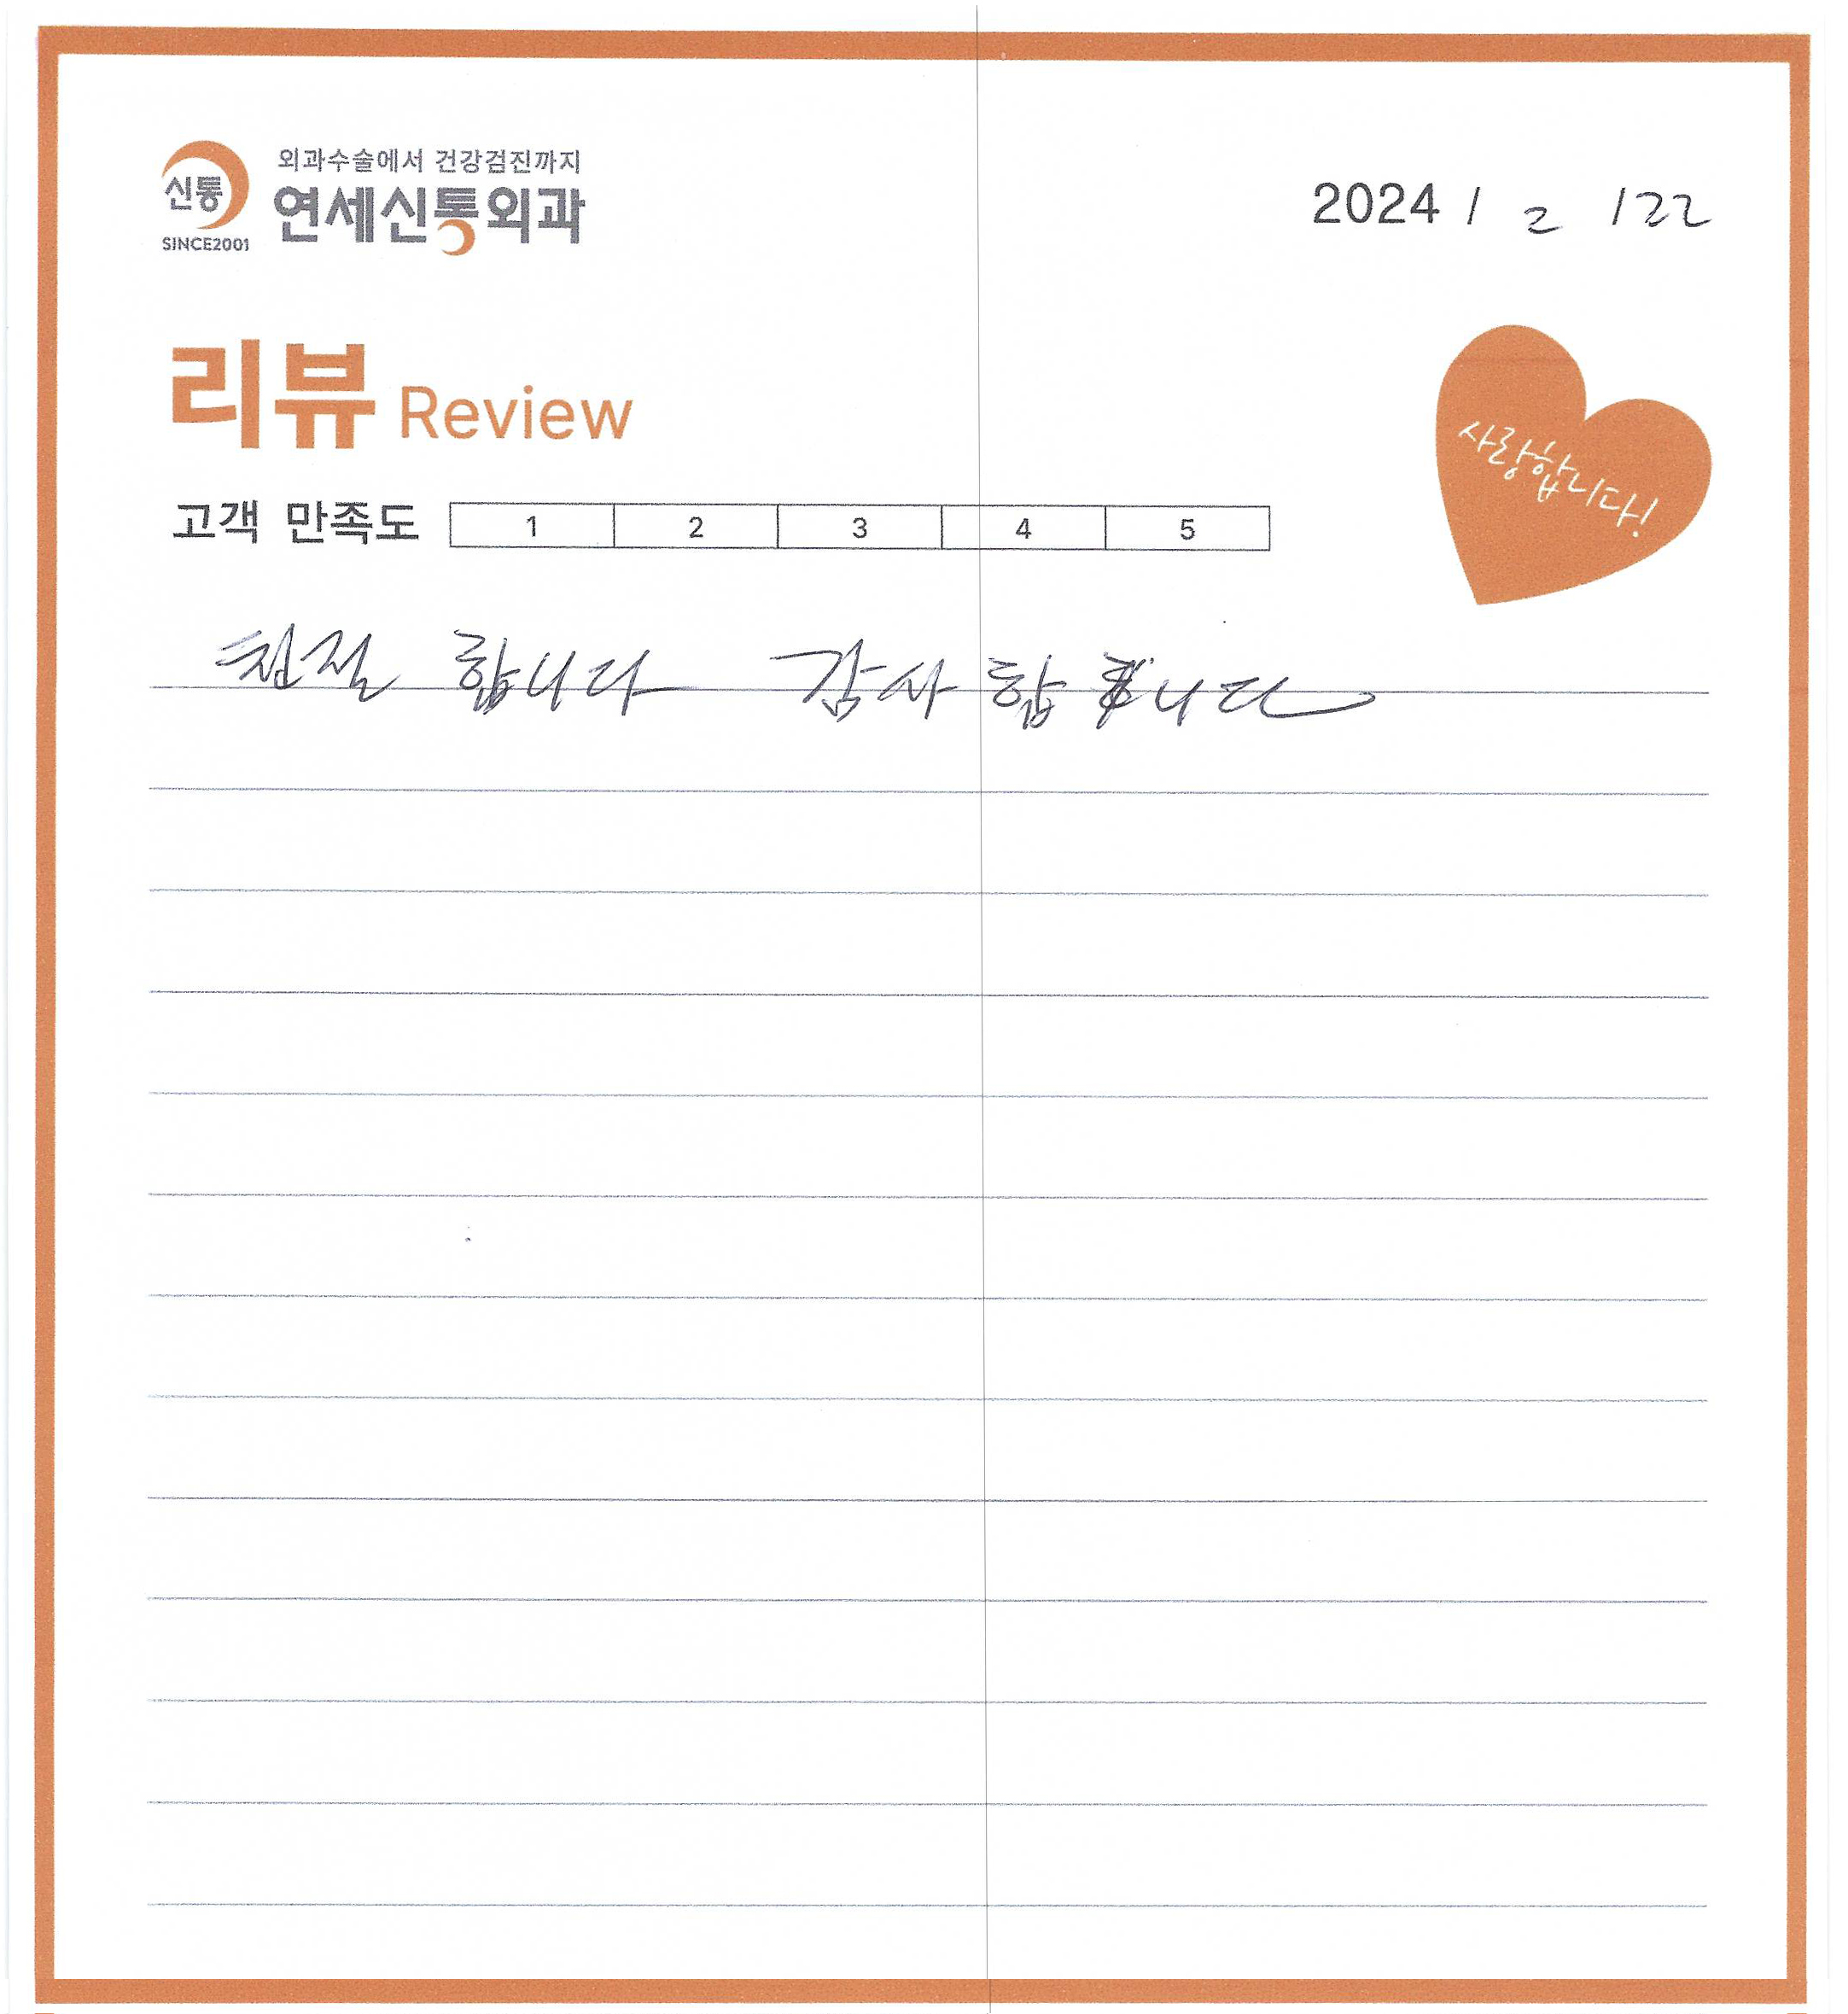 외과수술에서 건강검진까지
신통 연세신통외과
SINCE2001
2024 / 2 / 22
리뷰 Review
사랑합니다!
고객 만족도 1 2 3 4 5
친절 합니다 감사 합니다